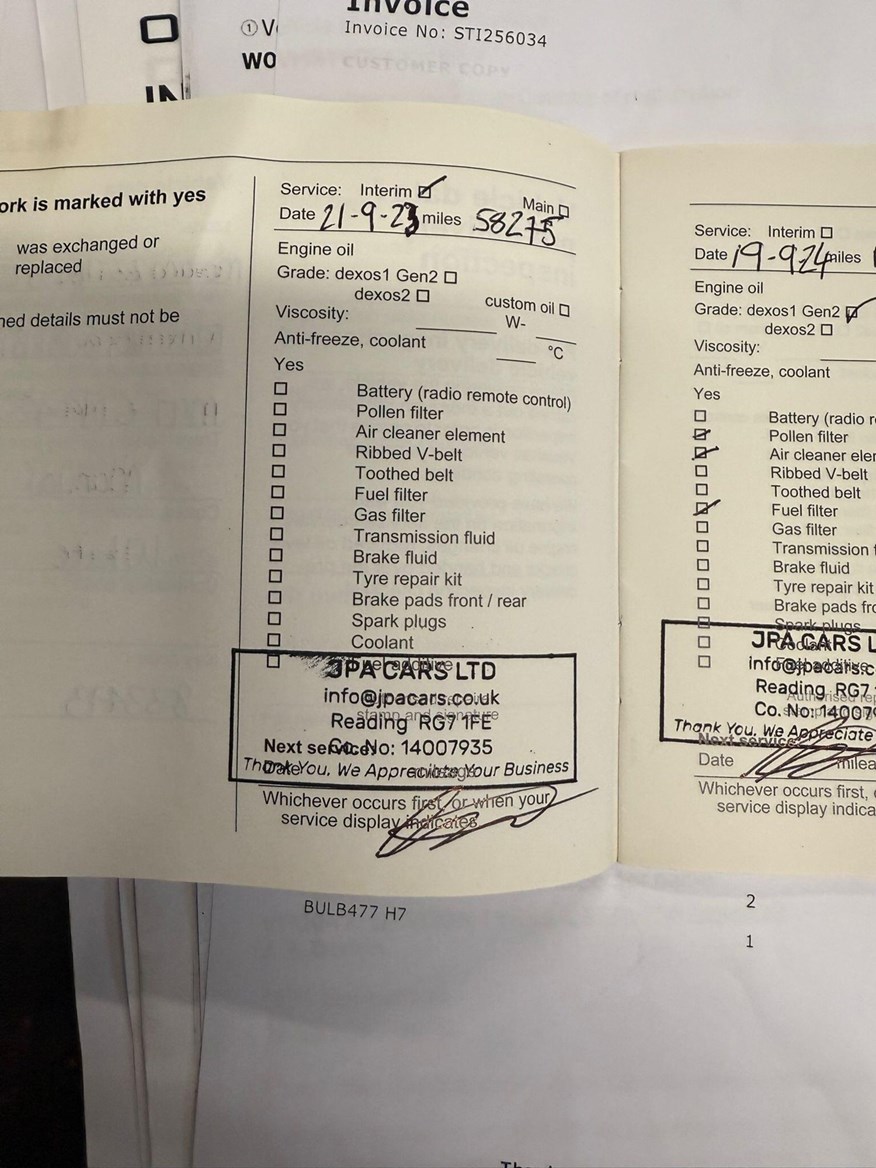 Invoice
Invoice No: STI256034
CUSTOMER COPY
WO
ork is marked with yes
was exchanged or
replaced
ned details must not be
Service: Interim ☑ Main ☐
Date 21-9-23 miles 58275
Engine oil
Grade: dexos1 Gen2 ☐
dexos2 ☐ custom oil ☐
Viscosity: W-
Anti-freeze, coolant °C
Yes
☐ Battery (radio remote control)
☐ Pollen filter
☐ Air cleaner element
☐ Ribbed V-belt
☐ Toothed belt
☐ Fuel filter
☐ Gas filter
☐ Transmission fluid
☐ Brake fluid
☐ Tyre repair kit
☐ Brake pads front / rear
☐ Spark plugs
☐ Coolant
☐ Fuel additive
JPA CARS LTD
info@jpacars.co.uk
stamp and signature
Reading RG7 1FE
Next service:
Co. No: 14007935
Date
Thank You. We Appreciate Your Business
Whichever occurs first, or when your
service display indicates
Service: Interim ☐
Date 19-9-24 miles
Engine oil
Grade: dexos1 Gen2 ☑
dexos2 ☐
Viscosity:
Anti-freeze, coolant
Yes
☐ Battery (radio r
☑ Pollen filter
☑ Air cleaner eler
☐ Ribbed V-belt
☐ Toothed belt
☑ Fuel filter
☐ Gas filter
☐ Transmission f
☐ Brake fluid
☐ Tyre repair kit
☐ Brake pads fro
☐ Spark plugs
☐ Coolant
☐ Fuel additive
JPA CARS L
info@jpacars.c
Authorised rep
Reading RG7
Co. No: 140079
Thank You. We Appreciate
Next service:
Date milea
Whichever occurs first, o
service display indica
BULB477 H7
2
1